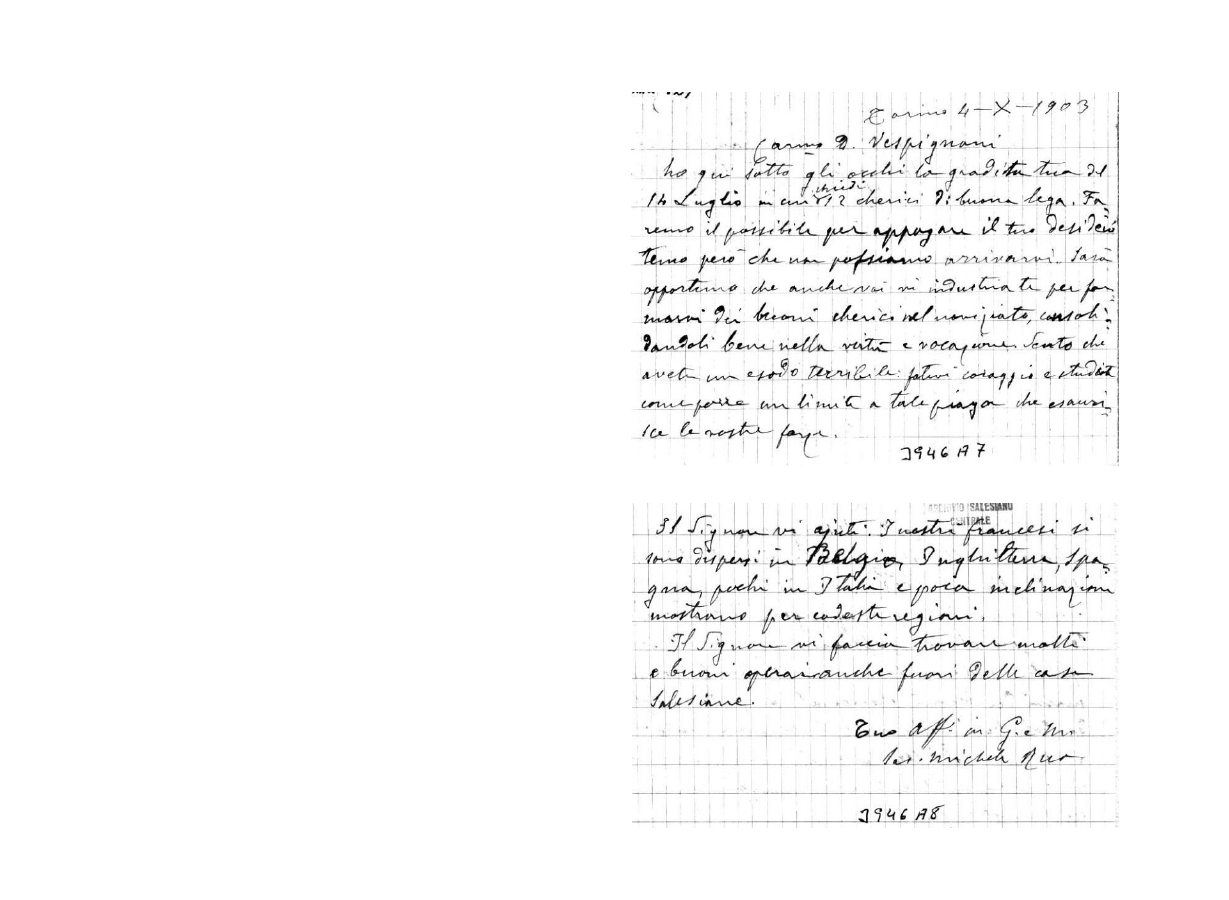 Torino 4-X-1903
Carmo D. Vespignani
ho qui sotto gli occhi la gradita tua del
14 Luglio in cui chiedi 12 cherici di buona lega. Fa-
remo il possibile per appagare il tuo desiderio
temo però che non possiamo arrivarvi. Sarà
opportuno che anche voi vi industriate per for-
marvi dei buoni cherici nel noviziato, consoli-
dandoli bene nella virtù e vocazione. Sento che
avete un esodo terribile: fatevi coraggio e studiate
come porre un limite a tale piaga che esauri-
sce le nostre forze.
3946 A 7
ARCHIVIO SALESIANO
CENTRALE
Il Signore vi ajuti. I nostri francesi si
sono dispersi in Belgio, Inghilterra, Spa-
gna, pochi in Italia e poca inclinazione
mostrano per codeste regioni.
Il Signore vi faccia trovare molti
e buoni operai anche fuori delle case
Salesiane.
Tuo aff. in G. e M.
Sac. Michele Rua
3946 A8